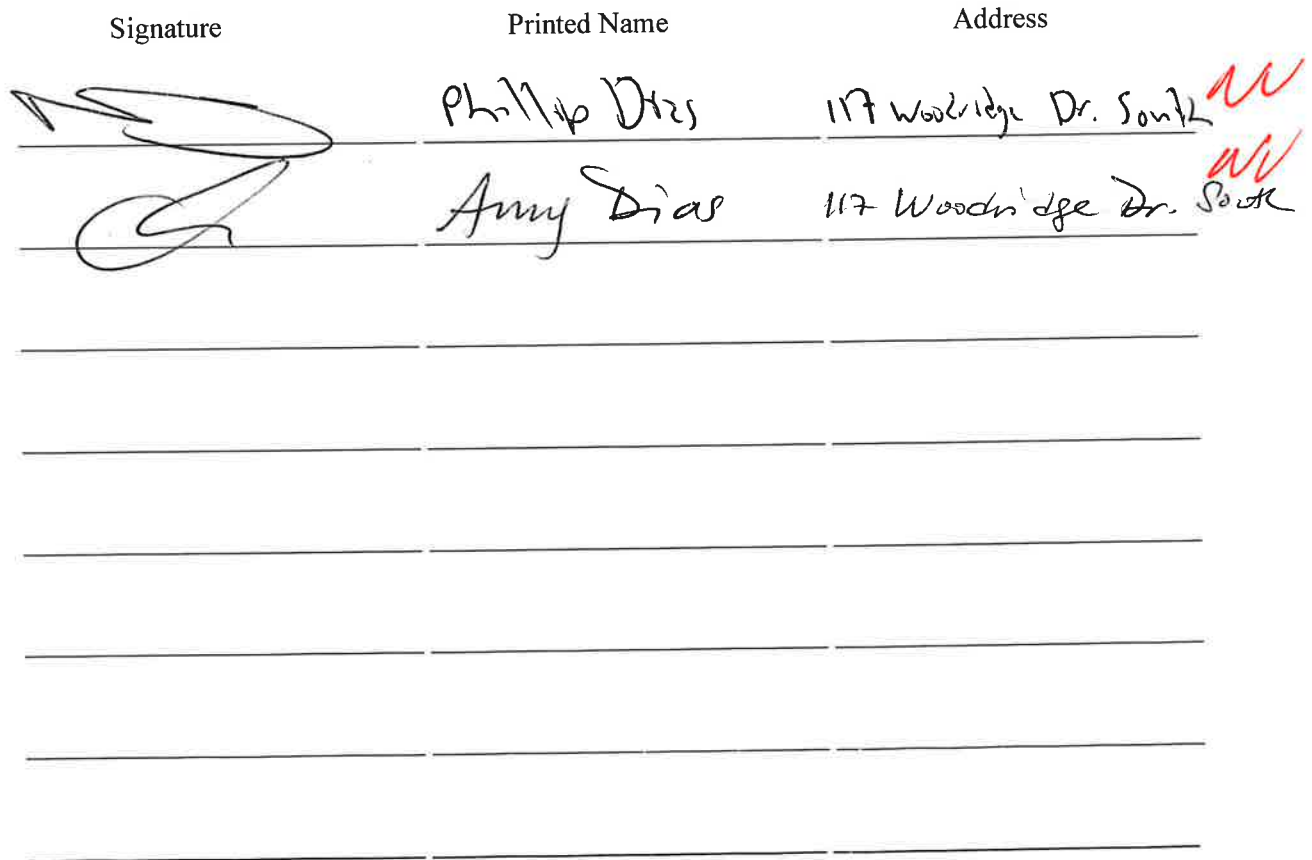 Signature Printed Name Address
Phillip Dias 117 Woodridge Dr. South
Amy Dias 117 Woodridge Dr. South